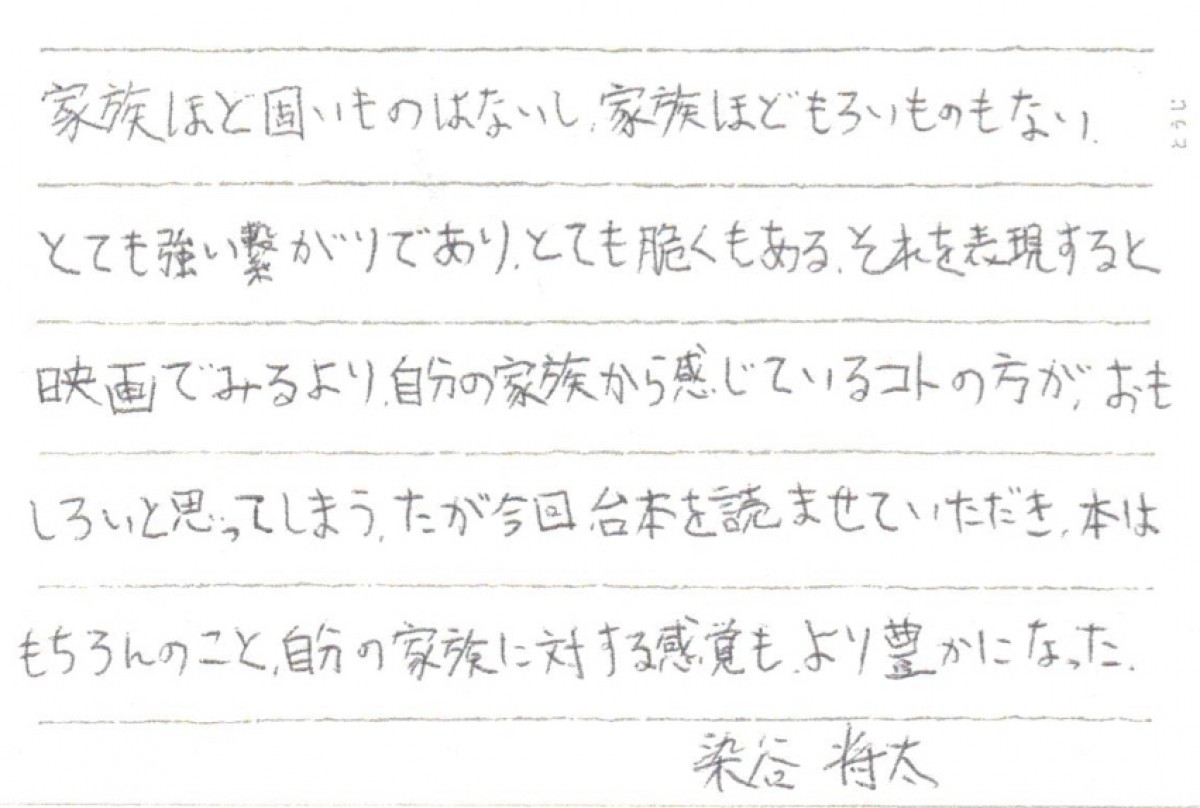 家族ほど固いものはないし、家族ほどもろいものもない、
とても強い繋がりであり、とても脆くもある、それを表現すると
映画でみるより、自分の家族から感じているコトの方が、おも
しろいと思ってしまう、たが今回台本を読ませていただき、本は
もちろんのこと、自分の家族に対する感覚も、より豊かになった、
染谷 将太